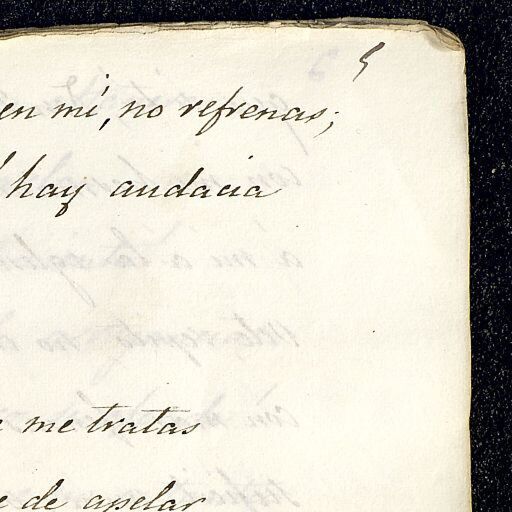 5
en mí, no refrenas;
hay audacia
me tratas
de apelar